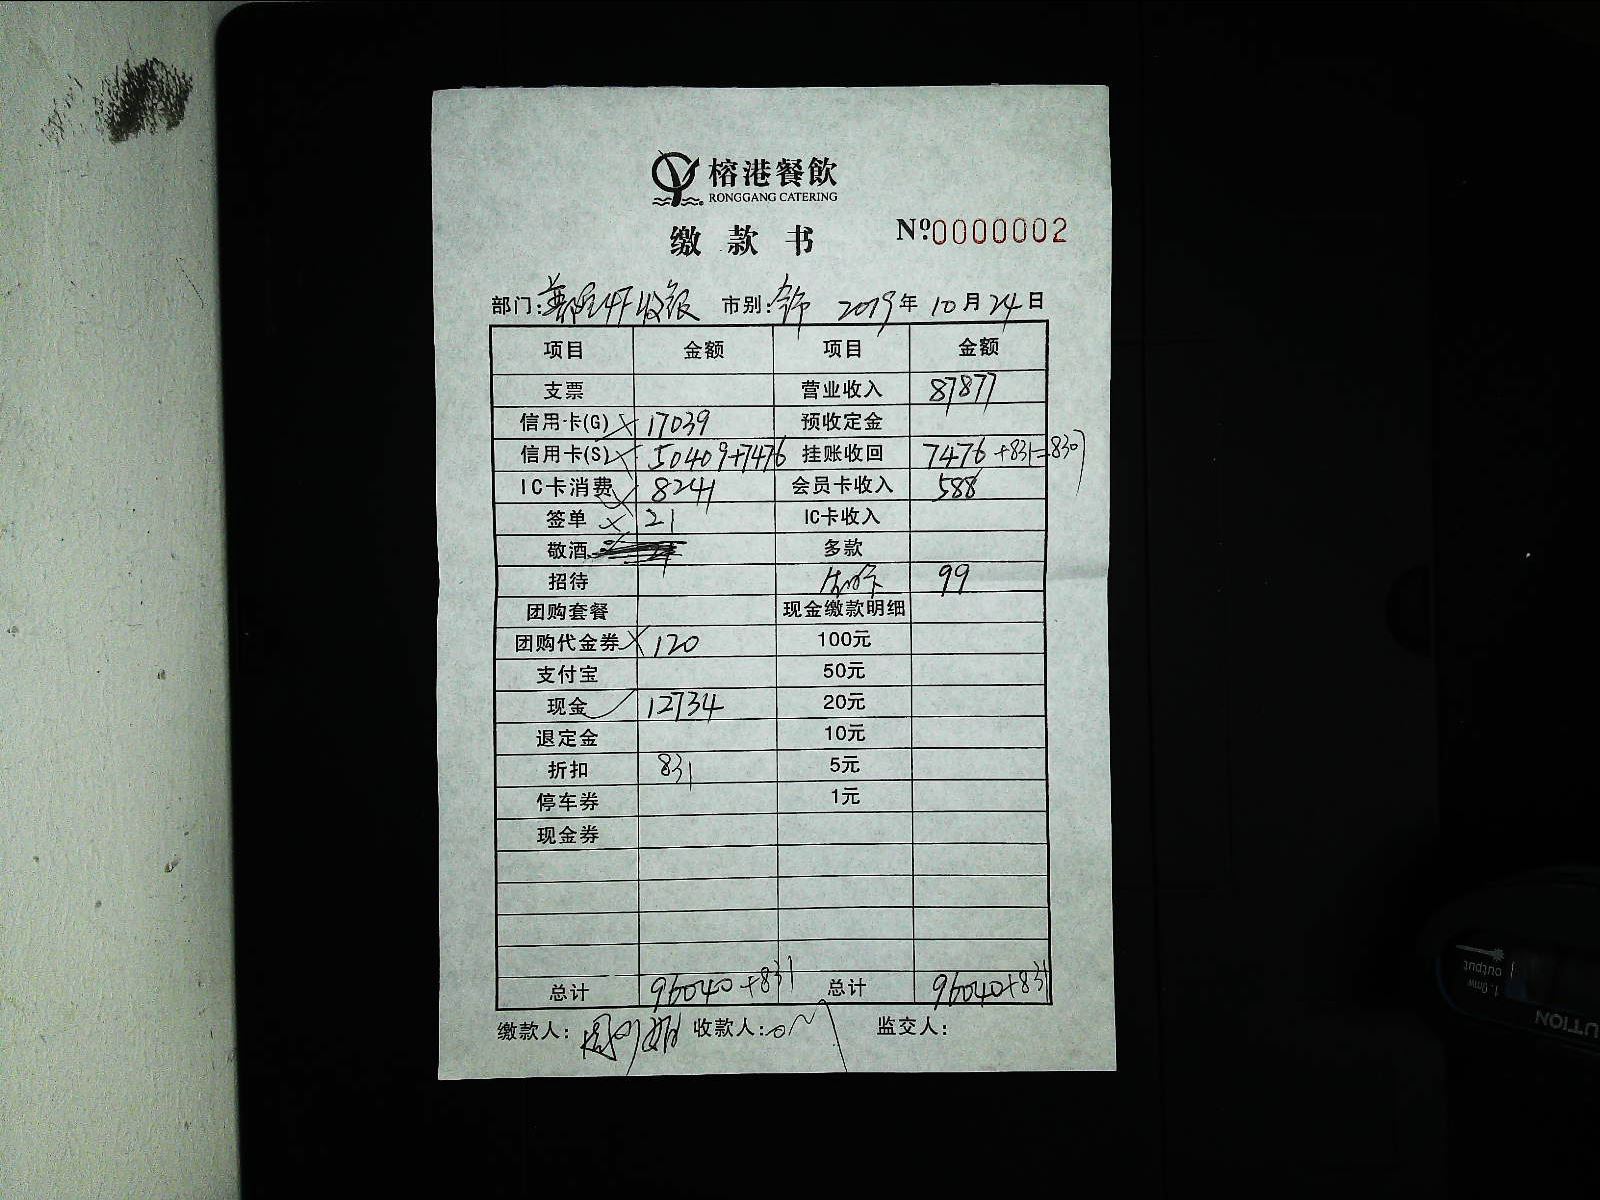 榕港餐飲
RONGGANG CATERING
缴款书 Nº:0000002
部门: 4F收银 市别: 2019年10月24日
项目 金额 项目 金额
支票 营业收入 87877
信用卡(G) 17039 预收定金
信用卡(S) 50409+7476 挂账收回 7476+831=8307
IC卡消费 8241 会员卡收入 588
签单 21 IC卡收入
敬酒 多款
招待 99
团购套餐 现金缴款明细
团购代金券 120 100元
支付宝 50元
现金 12734 20元
退定金 10元
折扣 831 5元
停车券 1元
现金券
总计 96040+831 总计 96040+831
缴款人: 收款人: 监交人:
output
1.0mw
UTION